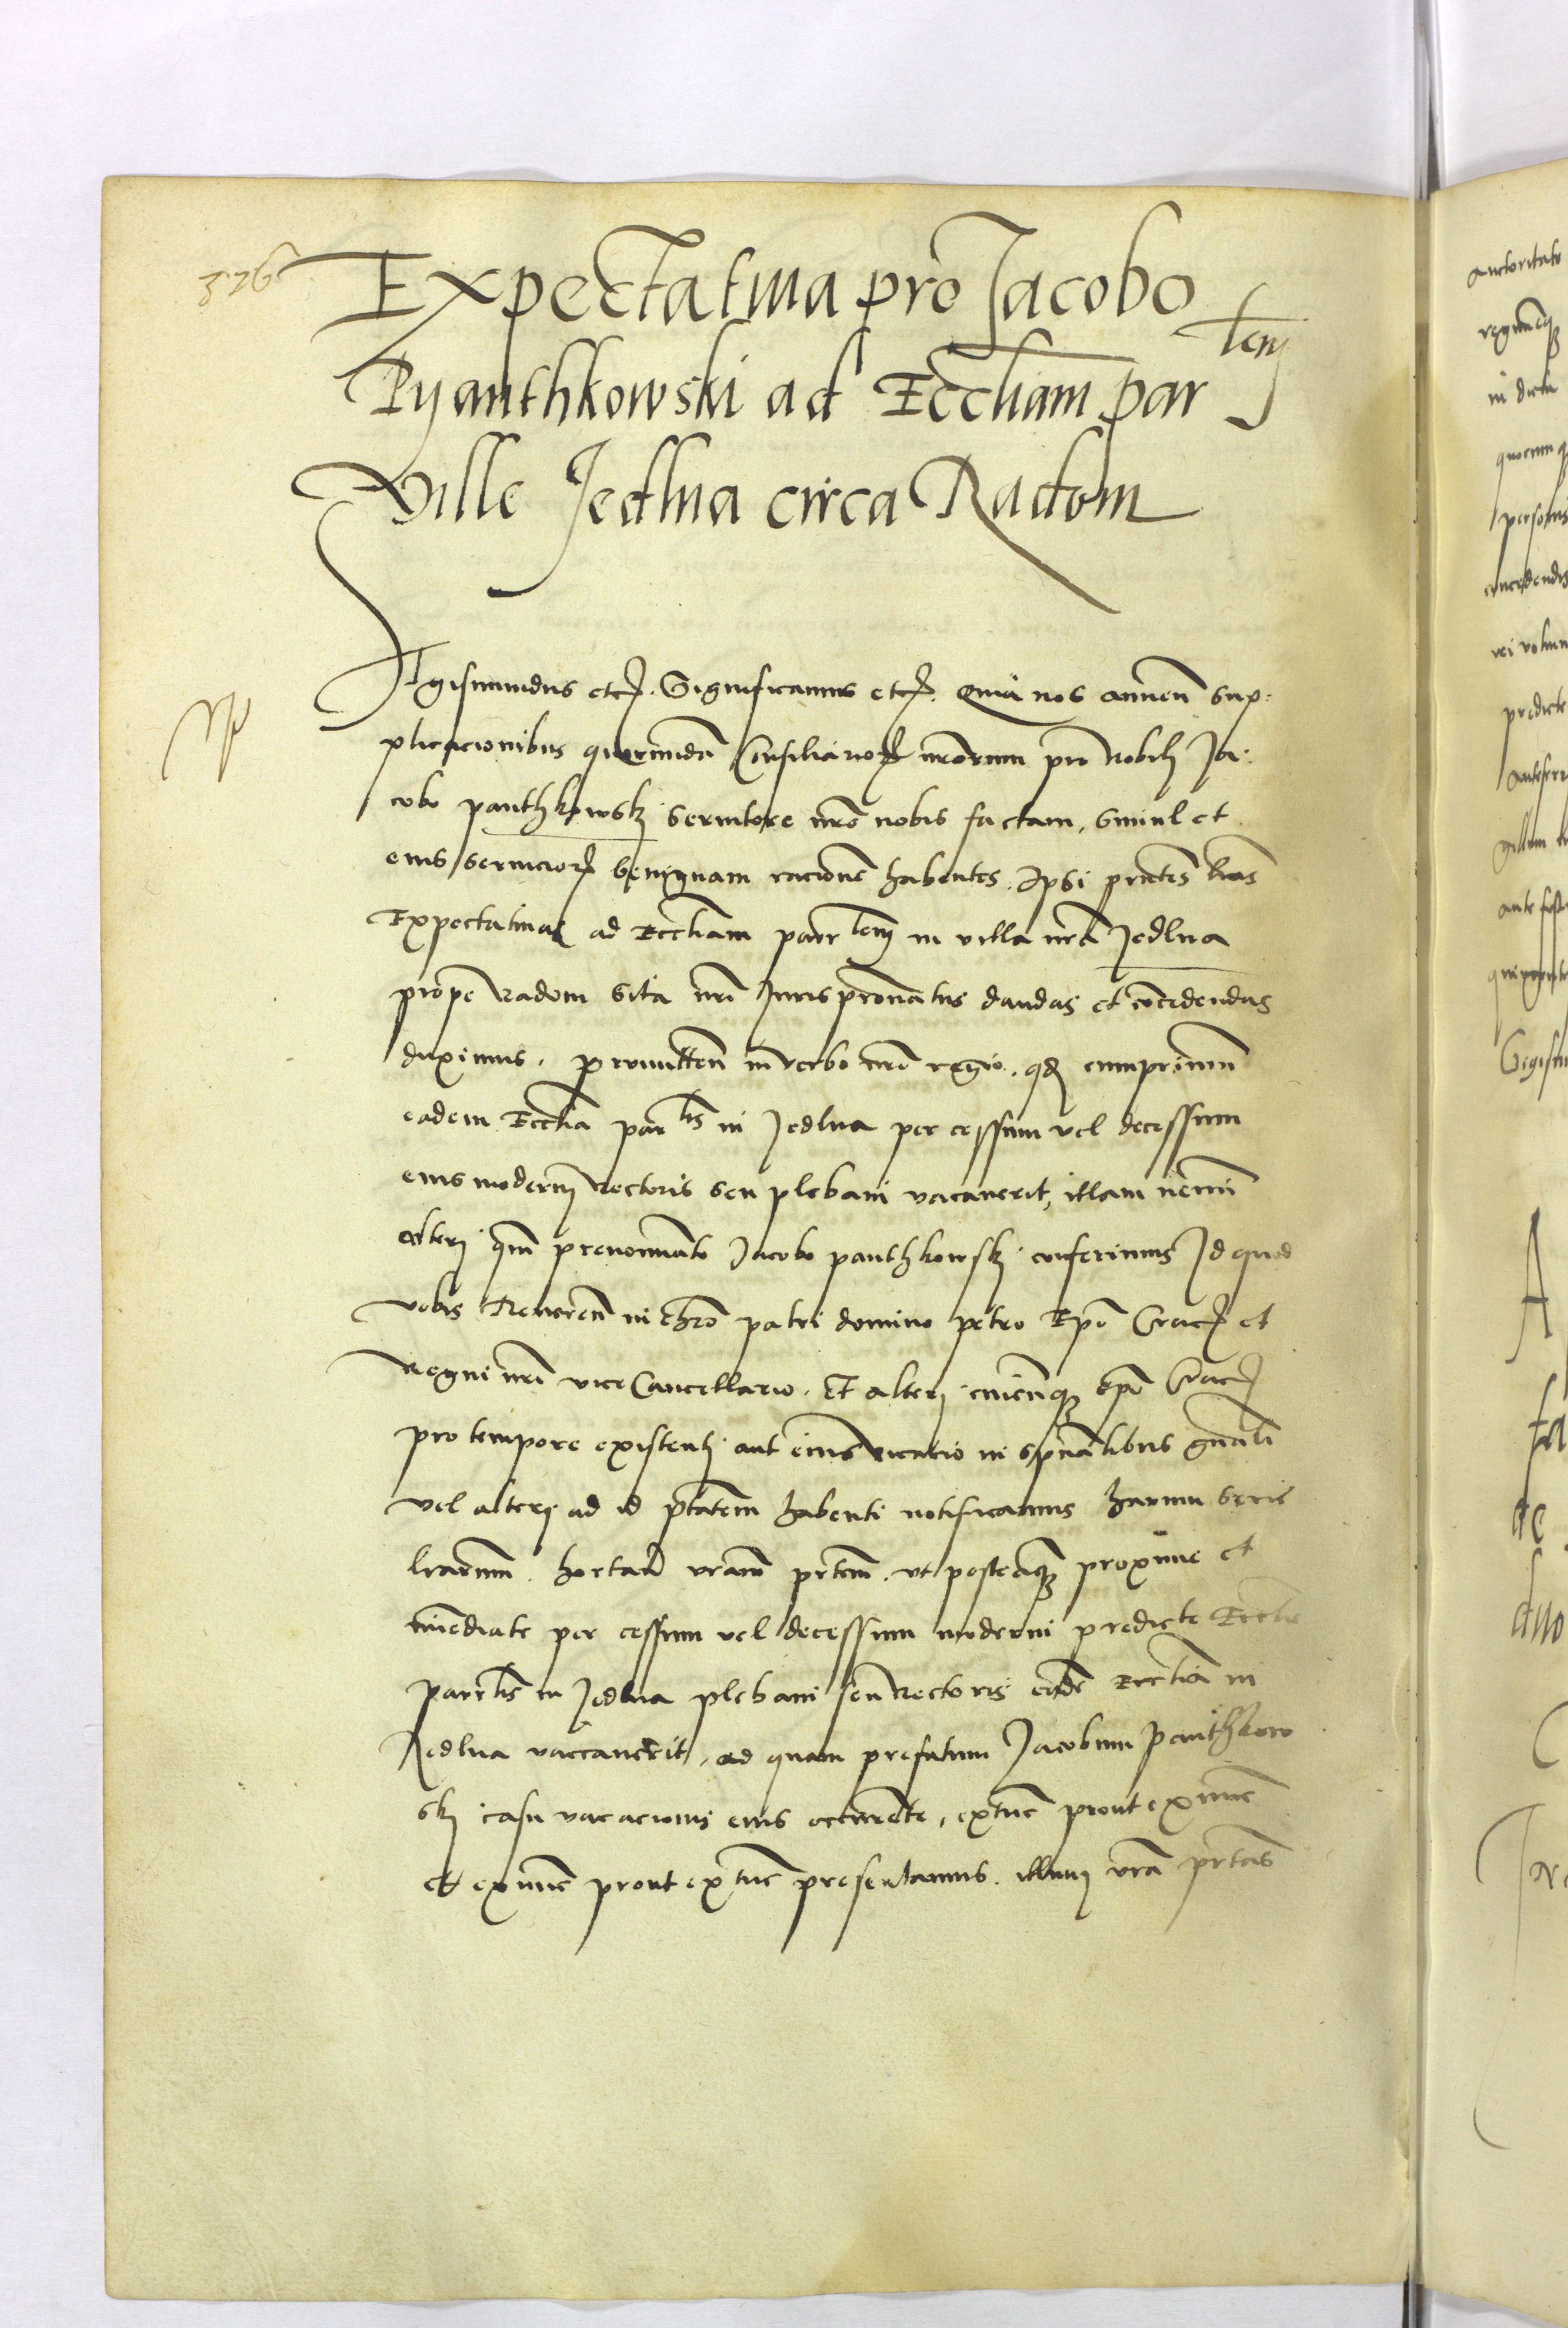 376
Expectatiua pro Jacobo
Pyanthkowski ad Eccliam par lem
Ville Jedlna circa Radom
Sigismundus etc. Significamus etc. Quia nos annuen sup-
plicacionibus quorundam Consiliarior nrorum pro Nobili Ja-
cobo panthkowskj seruitore nro nobis factam, simul et
eius seruicior benignam racione habentes. Ipsi pntes lras
Expectatiuas ad Eccliam parr lem in villa nra Jedlna
prope Radom sita nri Juris pronatus dandas et concedendas
duximus. promitten in verbo nro regio. qd cumprimum
eadem Ecclia par lis in Jedlna per cessum vel decessum
eius modernj Rectoris seu plebani vacauerit, illam nemini
alterj qm prenominato Jacobo panthkowskj conferimus Id quod
vobis Reueren in Chro patri domino petro Epo Crac et
Regni nri vice Cancellario. Et alterj cuicunqz Epo Crac
pro tempore existentj aut eius vicario in spualibus gnali
vel alterj ad id ptatem habenti notificamus harum serie
lrarum. hortan vram ptem. vt posteaqz proxime et
immediate per cessum vel decessum moderni predicte Ecclie
parr lis in Jedlna plebani seu Rectoris eade Ecclia in
Jedlna vaccauerit, ad quam prefatum Jacobum panthkow
skj casu vacacionis eius occurente, extunc prout exnunc
et exnunc prout extunc presentamus. illum vra ptas
auctoritate
in dicta
personis
concedendis
predicte